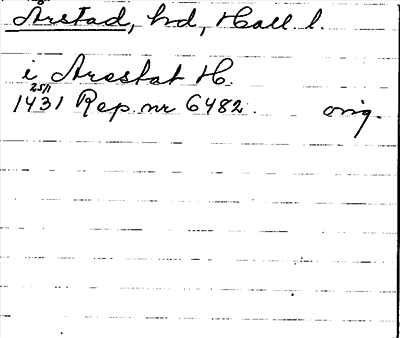 Årstad, hd, Hall l.
i Arestat H.
1431 25/1 Rep. nr 6482. orig.